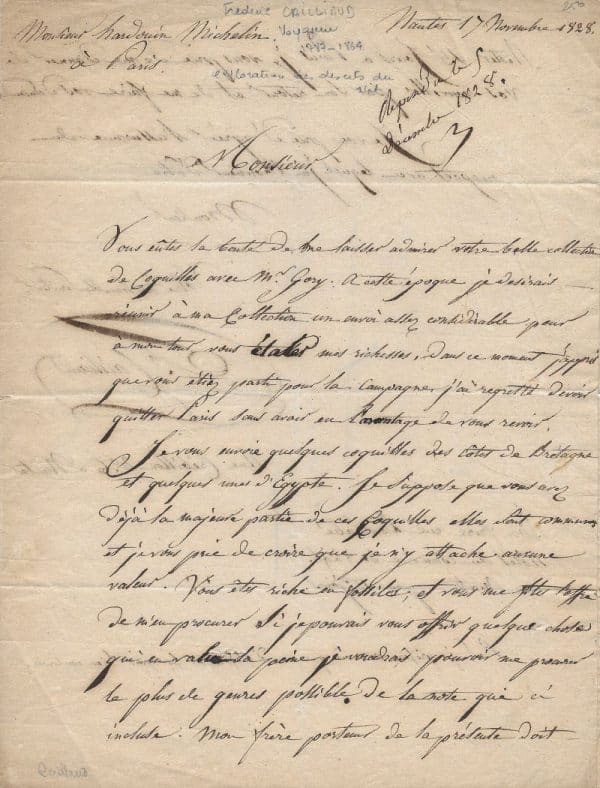 Frédéric CAILLIAUD
Voyageur
1787-1869
exploration des déserts du
Nil
Nantes 17 Novembre 1828.
250
Monsieur hardouin Michelin
à Paris
Répondu le 5
décembre 1828.
Monsieur
Vous eûtes la bonté de me laisser admirer votre belle collection
de Coquilles avec Mr Gory. A cette époque je desirais
réunir à ma Collection un envoi assez considérable pour
à mon tour vous étaler mes richesses, dans ce moment j'appris
que vous étiez parti pour la Campagne, j'ai regretté devoir
quitter Paris sans avoir eu l'avantage de vous revoir.
Je vous envoie quelques coquilles des côtes de Bretagne
et quelques unes d'Egypte. Je suppose que vous avez
déjà la majeure partie de ces Coquilles, elles sont communes
et je vous prie de croire que je n'y attache aucune
valeur. Vous êtes riche en fossiles; et vous me fîtes l'offre
de m'en procurer Si je pouvais vous offrir quelque chose
qui en valut la peine je voudrais pouvoir me procurer
le plus de genres possible de la note que ci
incluse. Mon frère porteur de la présente doit